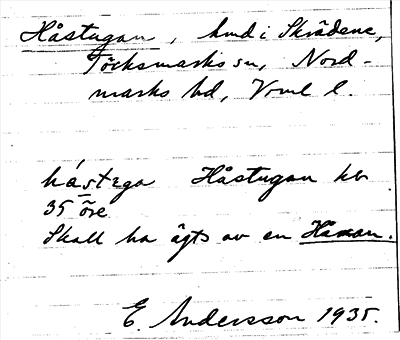 Håstugan, hmd i Skrådene,
Töcksmarks sn, Nord-
marks hd, Vrml l.
håstega Håstugan kb
35 öre
Skall ha ägts av en Håkan.
E. Andersson 1935.